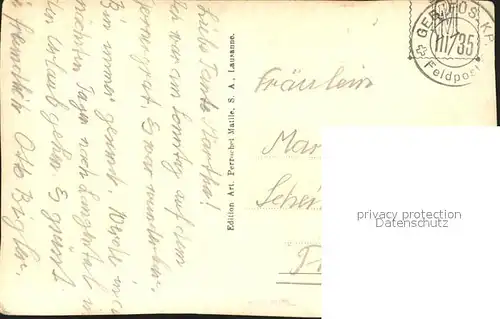 Liebe Tante Martha!
Ich war am Sonntag auf dem
Es war wunderbar.
Bin immer gesund. Werde in den
nächsten Tagen nach Langnthal in
den Urlaub gehen. Es grüsst
freundlich Otto Bigler.
Edition Art. Perrochet Matile, S. A., Lausanne.
Fräulein
Mar
Schei
GEB. POS. KP.
III/35
Feldpost
privacy protection
www.ansichtskartenversand.com